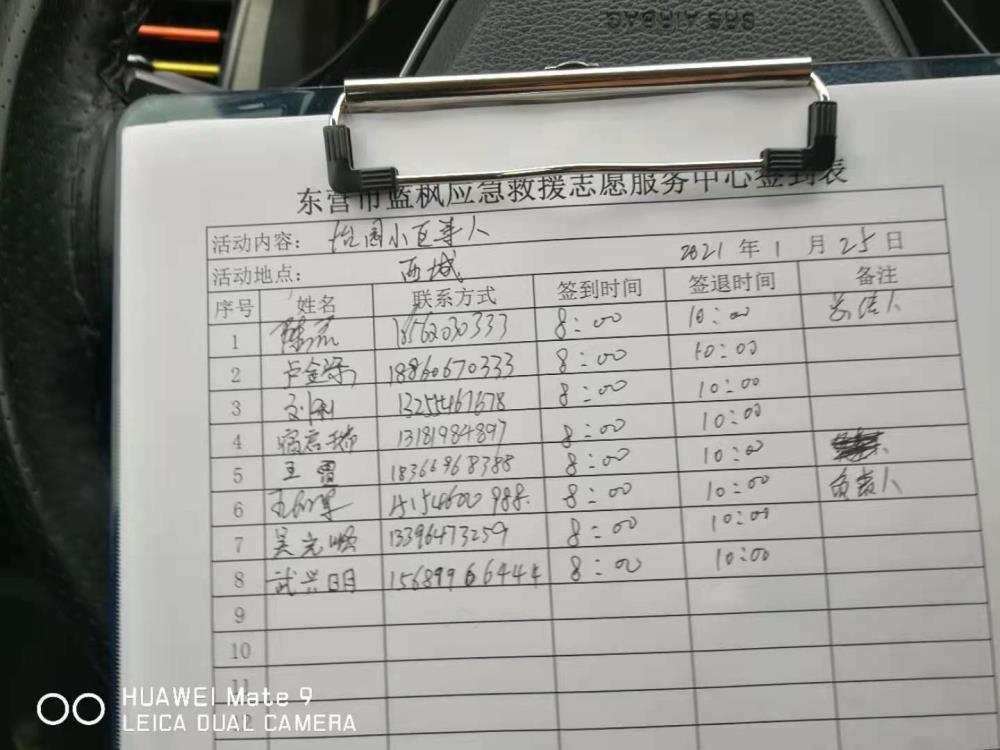 SRS AIRBAG
东营市监枫应急救援志愿服务中心签到表
活动内容： 怡园小区寻人
活动地点： 西城 2021 年 1 月 25 日
序号 姓名 联系方式 签到时间 签退时间 备注
1 18562030333 8:00 10:00
2 卢金 18860670333 8:00 10:00
3 刘刚 13255467678 8:00 10:00
4 13181984897 8:00 10:00
5 王雷 18366968388 8:00 10:00
6 8:00 10:00 负责人
7 吴光 13396473259 8:00 10:00
8 武兴明 15689966444 8:00 10:00
9
10
11
HUAWEI Mate 9
LEICA DUAL CAMERA